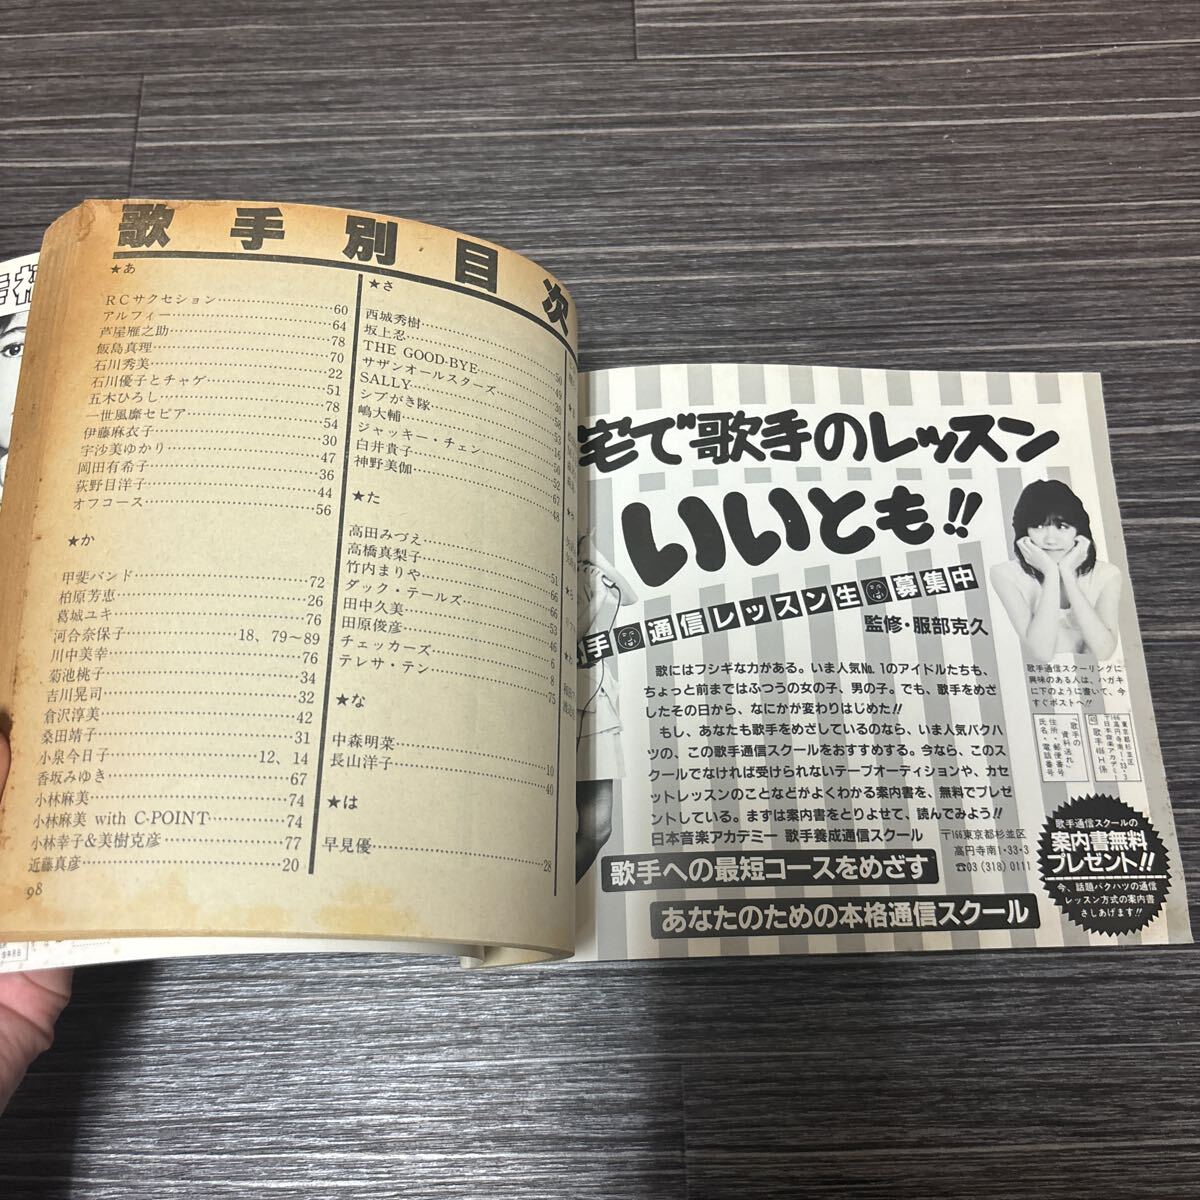 歌手別目次
★あ
RCサクセション……60
アルフィー……64
芦屋雁之助……78
飯島真理……70
石川秀美……22
石川優子とチャゲ……51
五木ひろし……78
一世風靡セピア……54
伊藤麻衣子……30
宇沙美ゆかり……47
岡田有希子……36
荻野目洋子……44
オフコース……56
★か
甲斐バンド……72
柏原芳恵……26
葛城ユキ……76
河合奈保子……18、79〜89
川中美幸……76
菊池桃子……34
吉川晃司……32
倉沢淳美……42
桑田靖子……31
小泉今日子……12、14
香坂みゆき……67
小林麻美……74
小林麻美 with C-POINT……74
小林幸子&美樹克彦……77
近藤真彦……20
98
★さ
西城秀樹……50
坂上忍……49
THE GOOD-BYE……38
サザンオールスターズ……58
SALLY……53
シブがき隊……16
嶋大輔……50
ジャッキー・チェン……52
白井貴子……67
神野美伽……48
★た
高田みづえ……51
高橋真梨子……66
竹内まりや……66
ダック・テールズ……53
田中久美……46
田原俊彦……6
チェッカーズ……8
テレサ・テン……75
★な
中森明菜……10
長山洋子……40
★は
早見優……28
宅で歌手のレッスン
いいとも!!
手 通信レッスン生 募集中
監修・服部克久
歌にはフシギな力がある。いま人気No.1のアイドルたちも、
ちょっと前まではふつうの女の子、男の子。でも、歌手をめざ
したその日から、なにかが変わりはじめた!!
もし、あなたも歌手をめざしているのなら、いま人気バクハ
ツの、この歌手通信スクールをおすすめする。今なら、このス
クールでなければ受けられないテープオーディションや、カセ
ットレッスンのことなどがよくわかる案内書を、無料でプレゼ
ントしている。まずは案内書をとりよせて、読んでみよう!!
日本音楽アカデミー 歌手養成通信スクール
〒166東京都杉並区
高円寺南1・33・3
☎03(318)0111
歌手への最短コースをめざす
あなたのための本格通信スクール
歌手通信スクーリングに
興味のある人は、ハガキ
に下のように書いて、今
すぐポストへ!!
〒166
東京都杉並区
高円寺南1・33・3
日本音楽アカデミー
歌手406H係
「歌手の
資料送れ」
住所・郵便番号
氏名・電話番号
歌手通信スクールの
案内書無料
プレゼント!!
今、話題バクハツの通信
レッスン方式の案内書
さしあげます!!